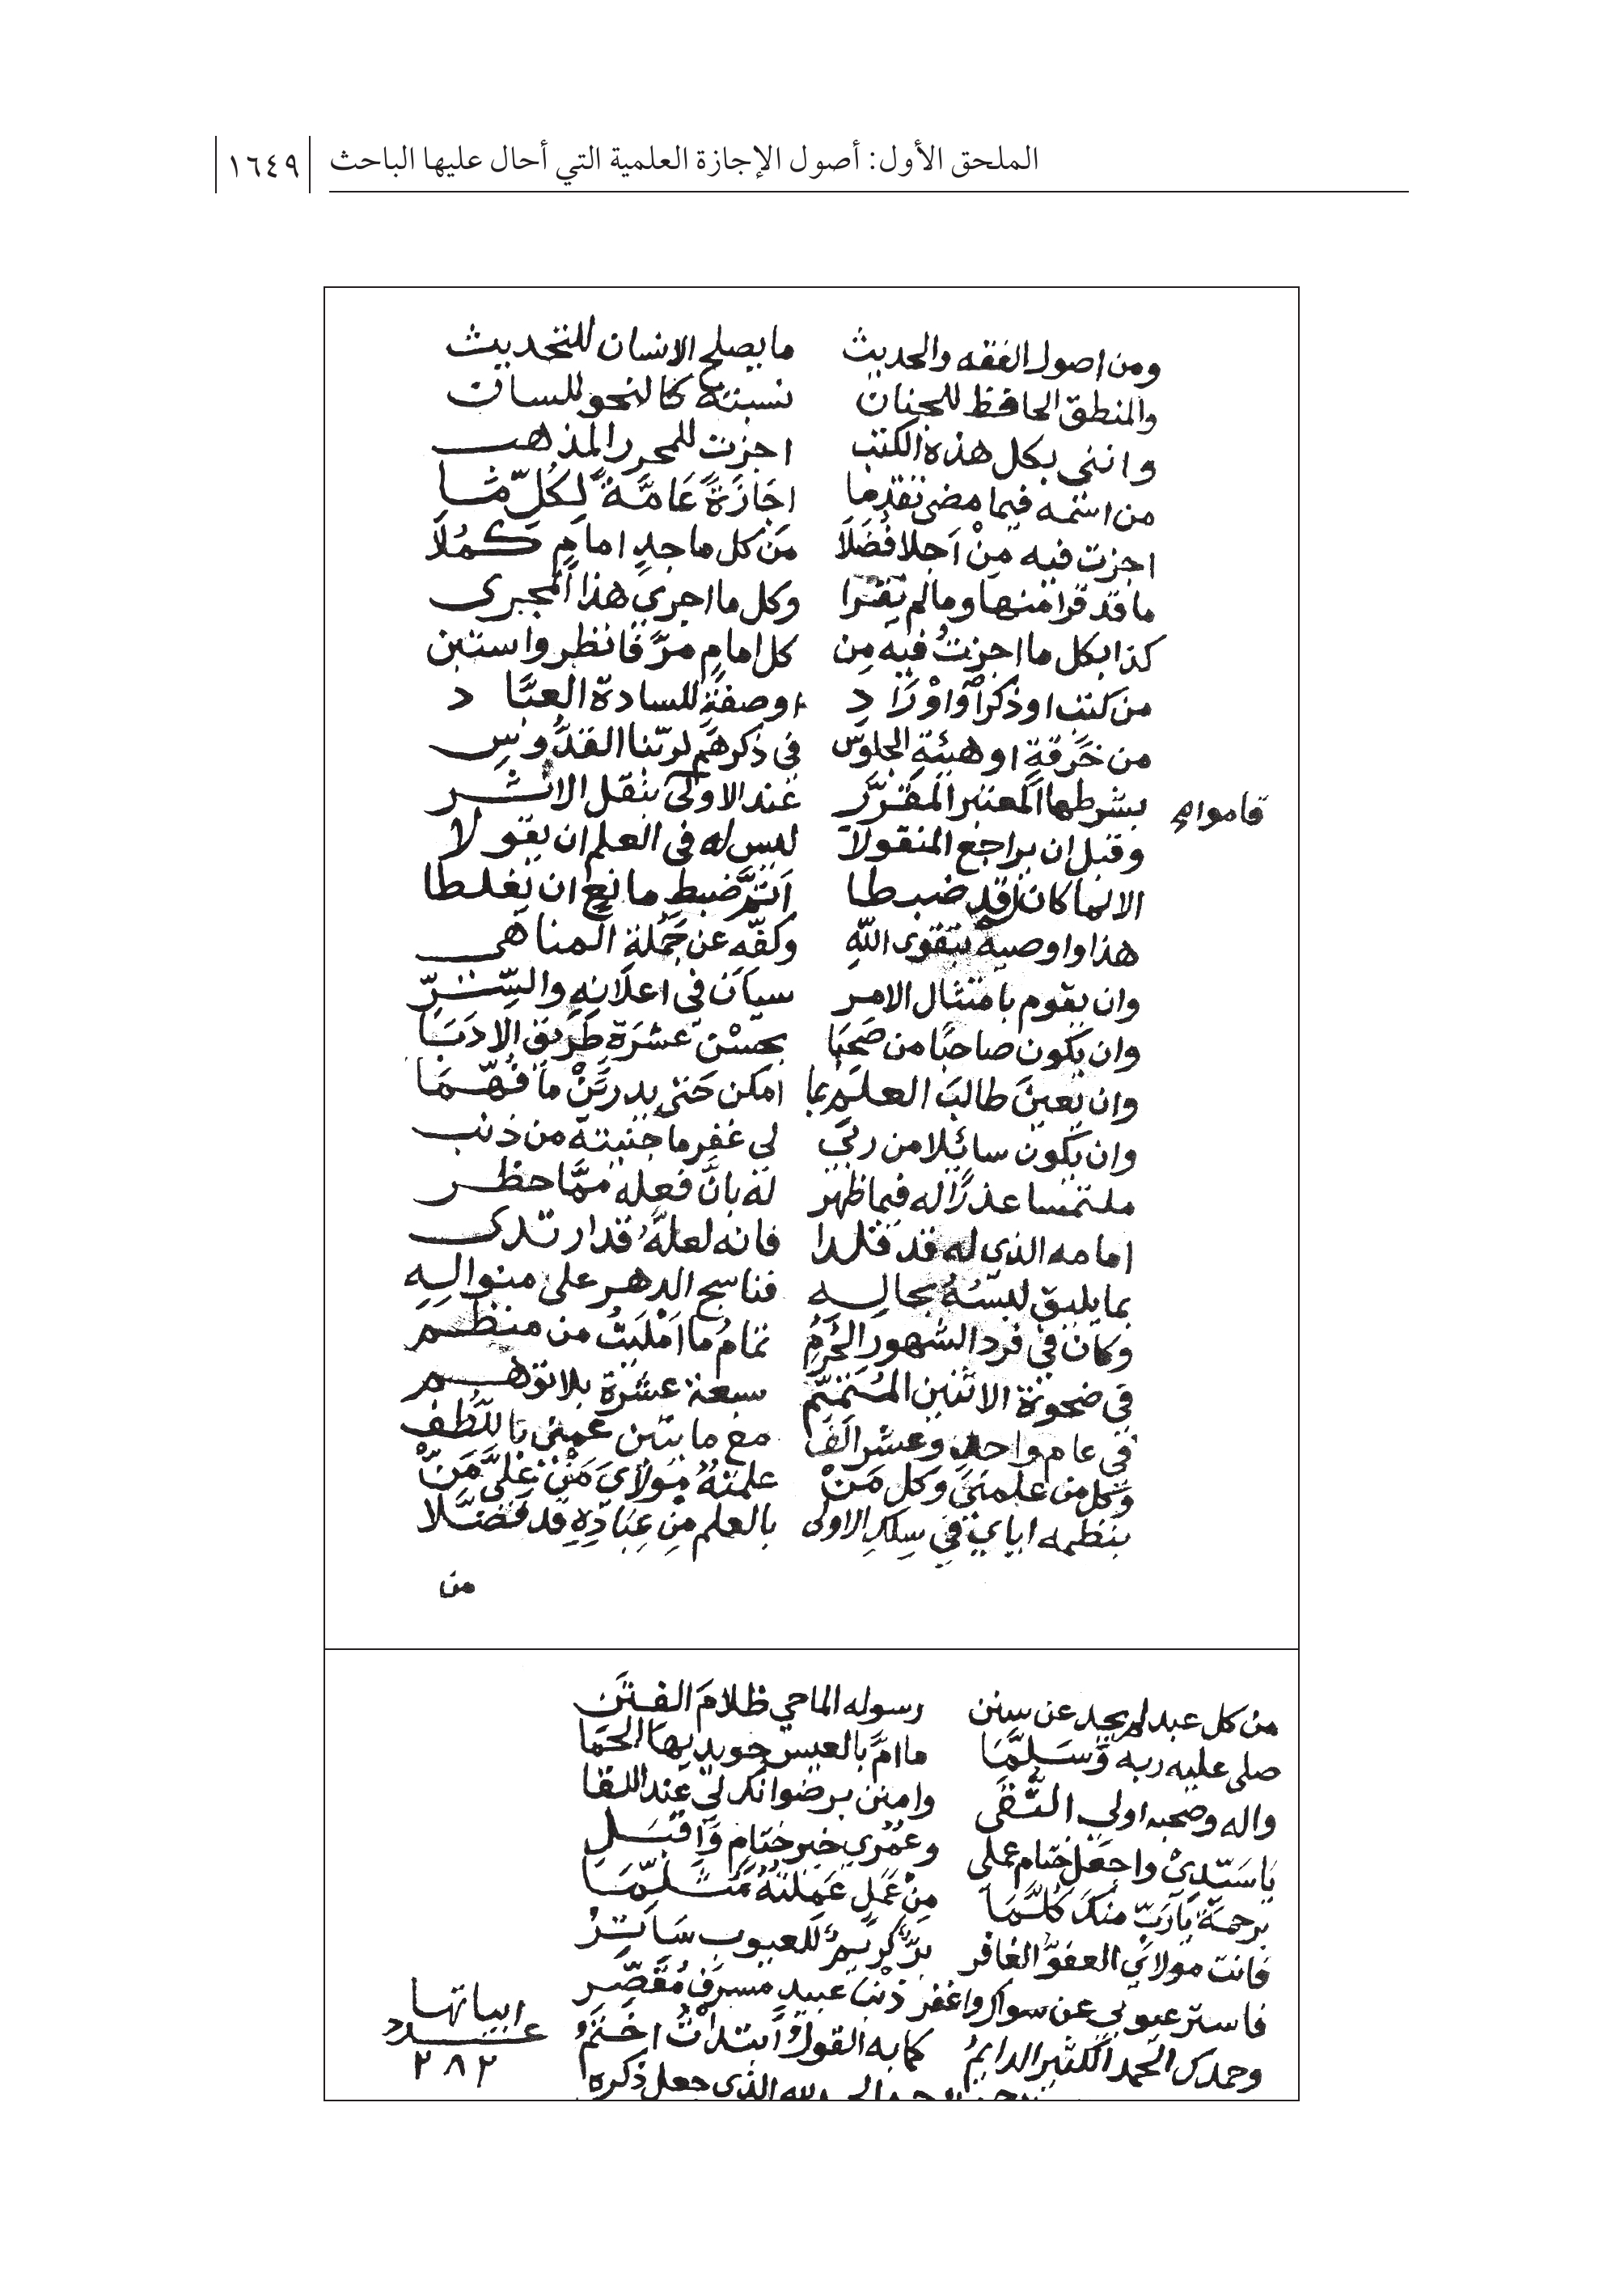 الملحق الأول: أصول الإجازة العلمية التي أحال عليها الباحث ١٦٤٩
ومن اصول الفقه والحديث ما يصلح الانسان للتحديث
والمنطق الحافظ للجنان نسبته كالنحو للسان
وانني بكل هذه الكتب اجزت للمحرر المذهب
من اسمه فيما مضى تقدما اجَازَةً عَامَّةً لِكُلِّ مَا
اجزت فيه مِنْ اَجلا فُضَلَا مَن كل ماجدٍ امامٍ كمُلَا
ما قد قرا منها وما لم يقرا وكل ما اجري هذا المجرى
كذا بكل ما اجزتُ فيه مِن كل امامٍ مرَّ فانظر واستبن
من كتب او ذكرٍ او اوْرَادِ او صفةٍ للسادة العبَّاد
من خرقةٍ او هيئةِ الجلوس في ذكرهم لربّنا القدُّوس
بشرطها المعتبر المقرَّر عند الاولى بنقل الاثر
وقبل ان يراجع المنقولا ليس له في العلم ان يقولا
الا لما كان قد ضبطا ضبط مانع ان يغلطا
هذا واوصيه بتقوى الله وكفّه عن جملة المناهي
وان يقوم بامتثال الامر سيان في اعلانِهِ والسِّرِّ
وان يكون صاحبًا من صَحِبَا بحسْن عشرَة طَريق الادَبَا
وان يعينَ طالبَ العلم بما امكن حتى يدريَنْ ما فُهّمَا
وان يكون سائلا من ربي لي غفر ما جنيته من ذنب
ملتمسا عذرًا له فيما ظهر له بانَّ فعله ممَّا حظر
امامه الذي له قد قلدا فانه لعلَّهُ قد ارتدى
بما يليق لبسُهُ بحالِه فناسج الدهر على منوالِهِ
وكان في فرد الشهور الحُرُمِ تمامُ ما امْلَيتُ من منظم
في ضحوة الاثنين المُتَمَّم سبعة عشرة بلا توهم
في عام واحدٍ وعشر الفَ مع مايتين عمني باللُّطف
وكل من علمني وكل مَنْ علمتهُ مولاي مَنْ عَلَيَّ مَنّْ
بنظمه اياي في سِلك الاولى بالعلم مِن عِبَادِهِ قد فَضَّلا
من
من كل عبد لم يحد عن سنن رسوله الماحي ظلامَ الفتَن
صلى عليه ربه وَسَلَّمَا ما امَّ بالعيس حويديها الحمَا
واله وصحبه اولي التُّقَى وامنن برضوانك لي عند اللقا
يَا سَيّدِيْ واجعَل ختام عملي وعمُري خير ختامٍ وَاقبَلِ
برحمة يا رَبِّ منكَ كُلَّمَا مِنْ عَمَلٍ عَمِلتُهُ
فانت مولاي العفوُّ الغافر برٌّ كريمٌ للعيوب سَاتِرْ
فاستر عيوبي عن سواك واغفر ذنبَ عبيدٍ مسرفٍ مُقَصِّر
وحمدك الحمد الكثير الدايمُ كما به القولُ ابتدأتُ اختمُ
لله الذي جعل ذكره
قاموا
ابياتها
عدد
٢٨٢